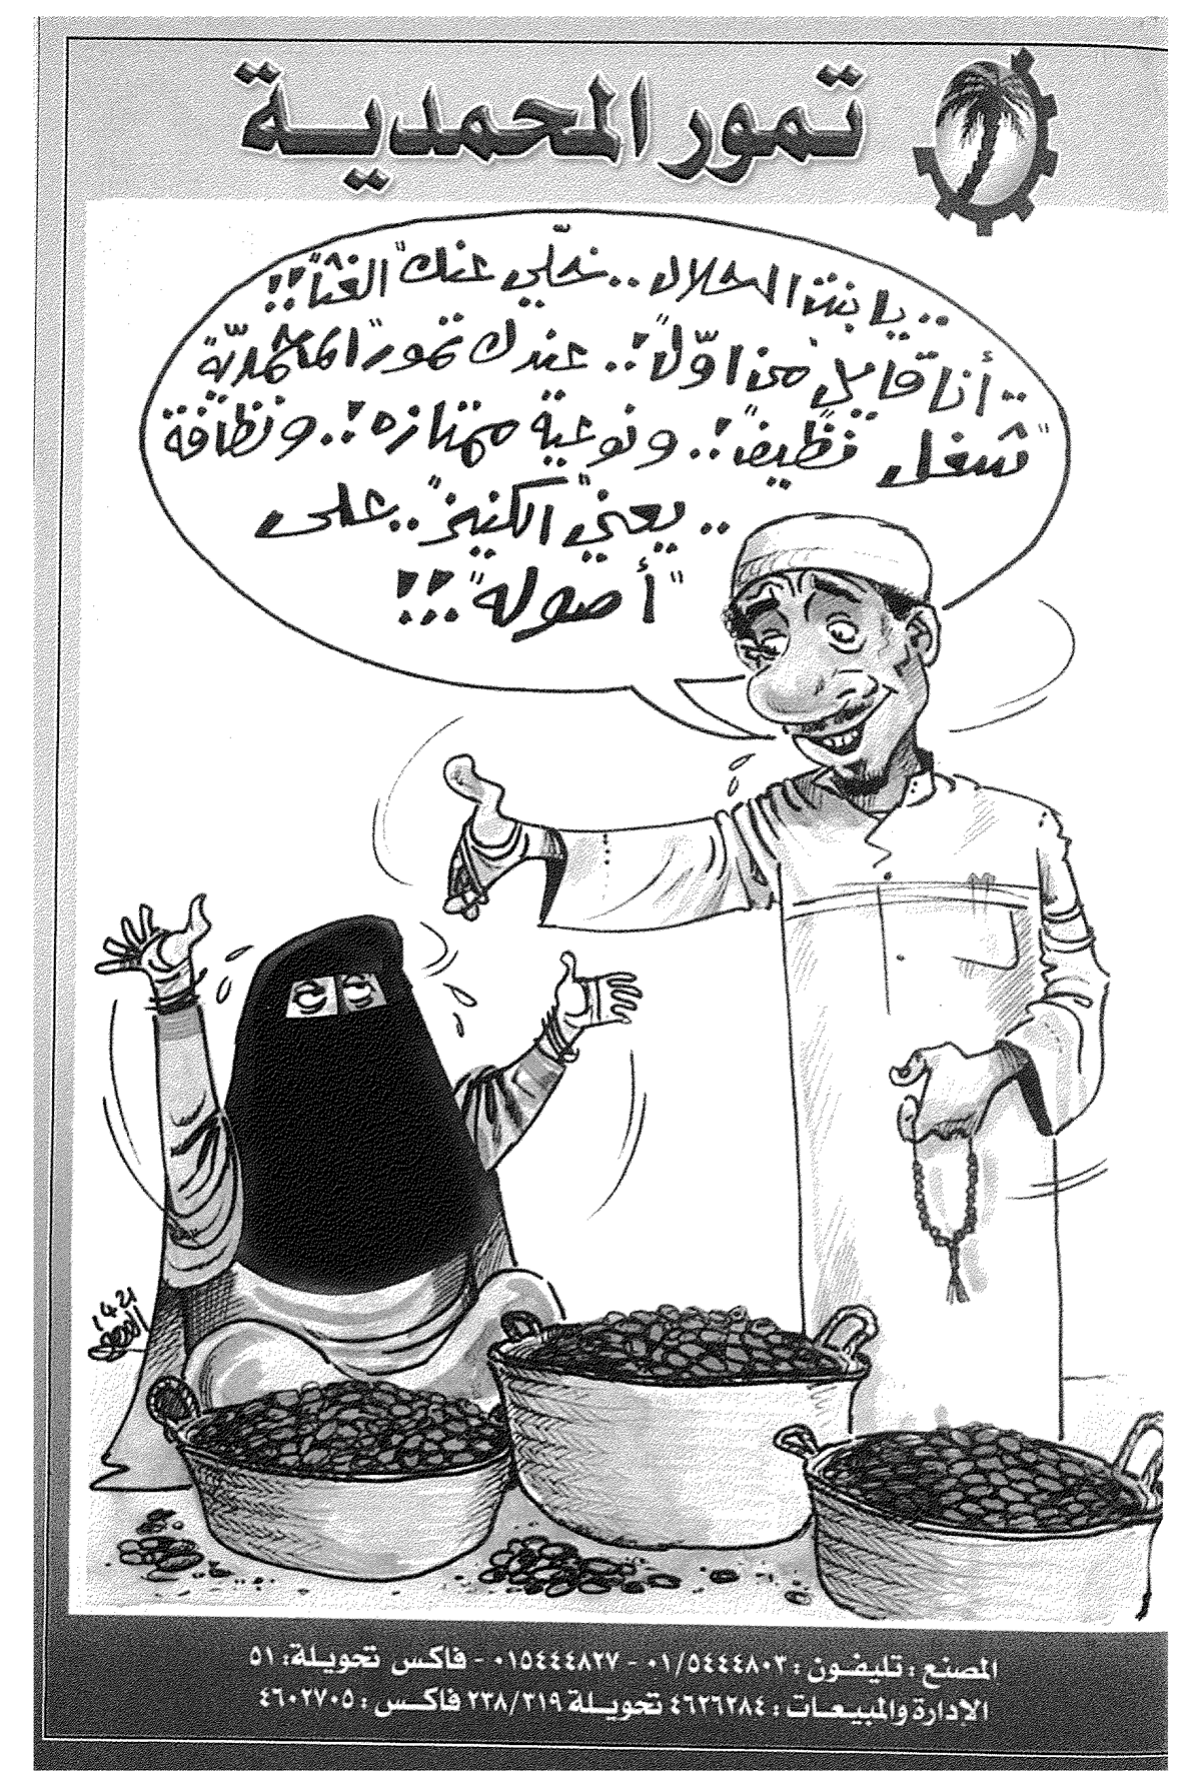 تمور المحمدية
.. يا بنت الحلال .. خلّي عنك "الغثا"!!
.. أنا قايل من اوّل"!.. عندك تمور "المحمديّة"
"شغل نظيف"!.. ونوعية ممتازه!.. ونظافة
.. يعني "الكنيز".. على
"أصوله"..!!
١٤٢١
المصنع : تليفون : ٠١/٥٤٤٤٨٠٣ - ٠١٥٤٤٤٨٢٧ - فاكس تحويلة : ٥١
الإدارة والمبيعات : ٤٦٢٦٢٨٤ تحويلة ٢٣٨/٣١٩ فاكس : ٤٦٠٢٧٠٥